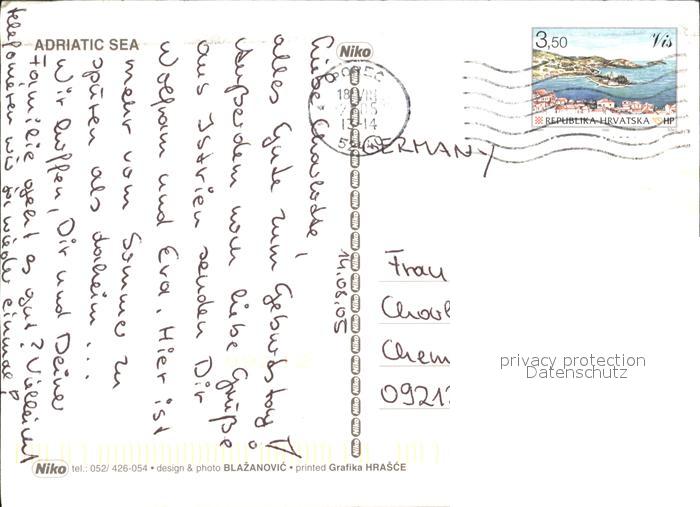 ADRIATIC SEA
Niko
3,50
Vis
REPUBLIKA HRVATSKA HP
POREČ
18
13-14
52
GERMANY
14.08.05
Liebe Charlotte,
alles Gute zum Geburtstag!
Außerdem noch liebe Grüße
aus Istrien senden Dir
Wolfram und Eva. Hier ist
mehr vom Sommer zu
spüren als daheim...
Wir hoffen, Dir und Deiner
Familie geht es gut? Vielleicht
telefonieren wir ja wieder einmal?
Frau
Charl
Chem
0921
privacy protection
Datenschutz
Niko tel.: 052/ 426-054 • design & photo BLAŽANOVIĆ • printed Grafika HRAŠĆE